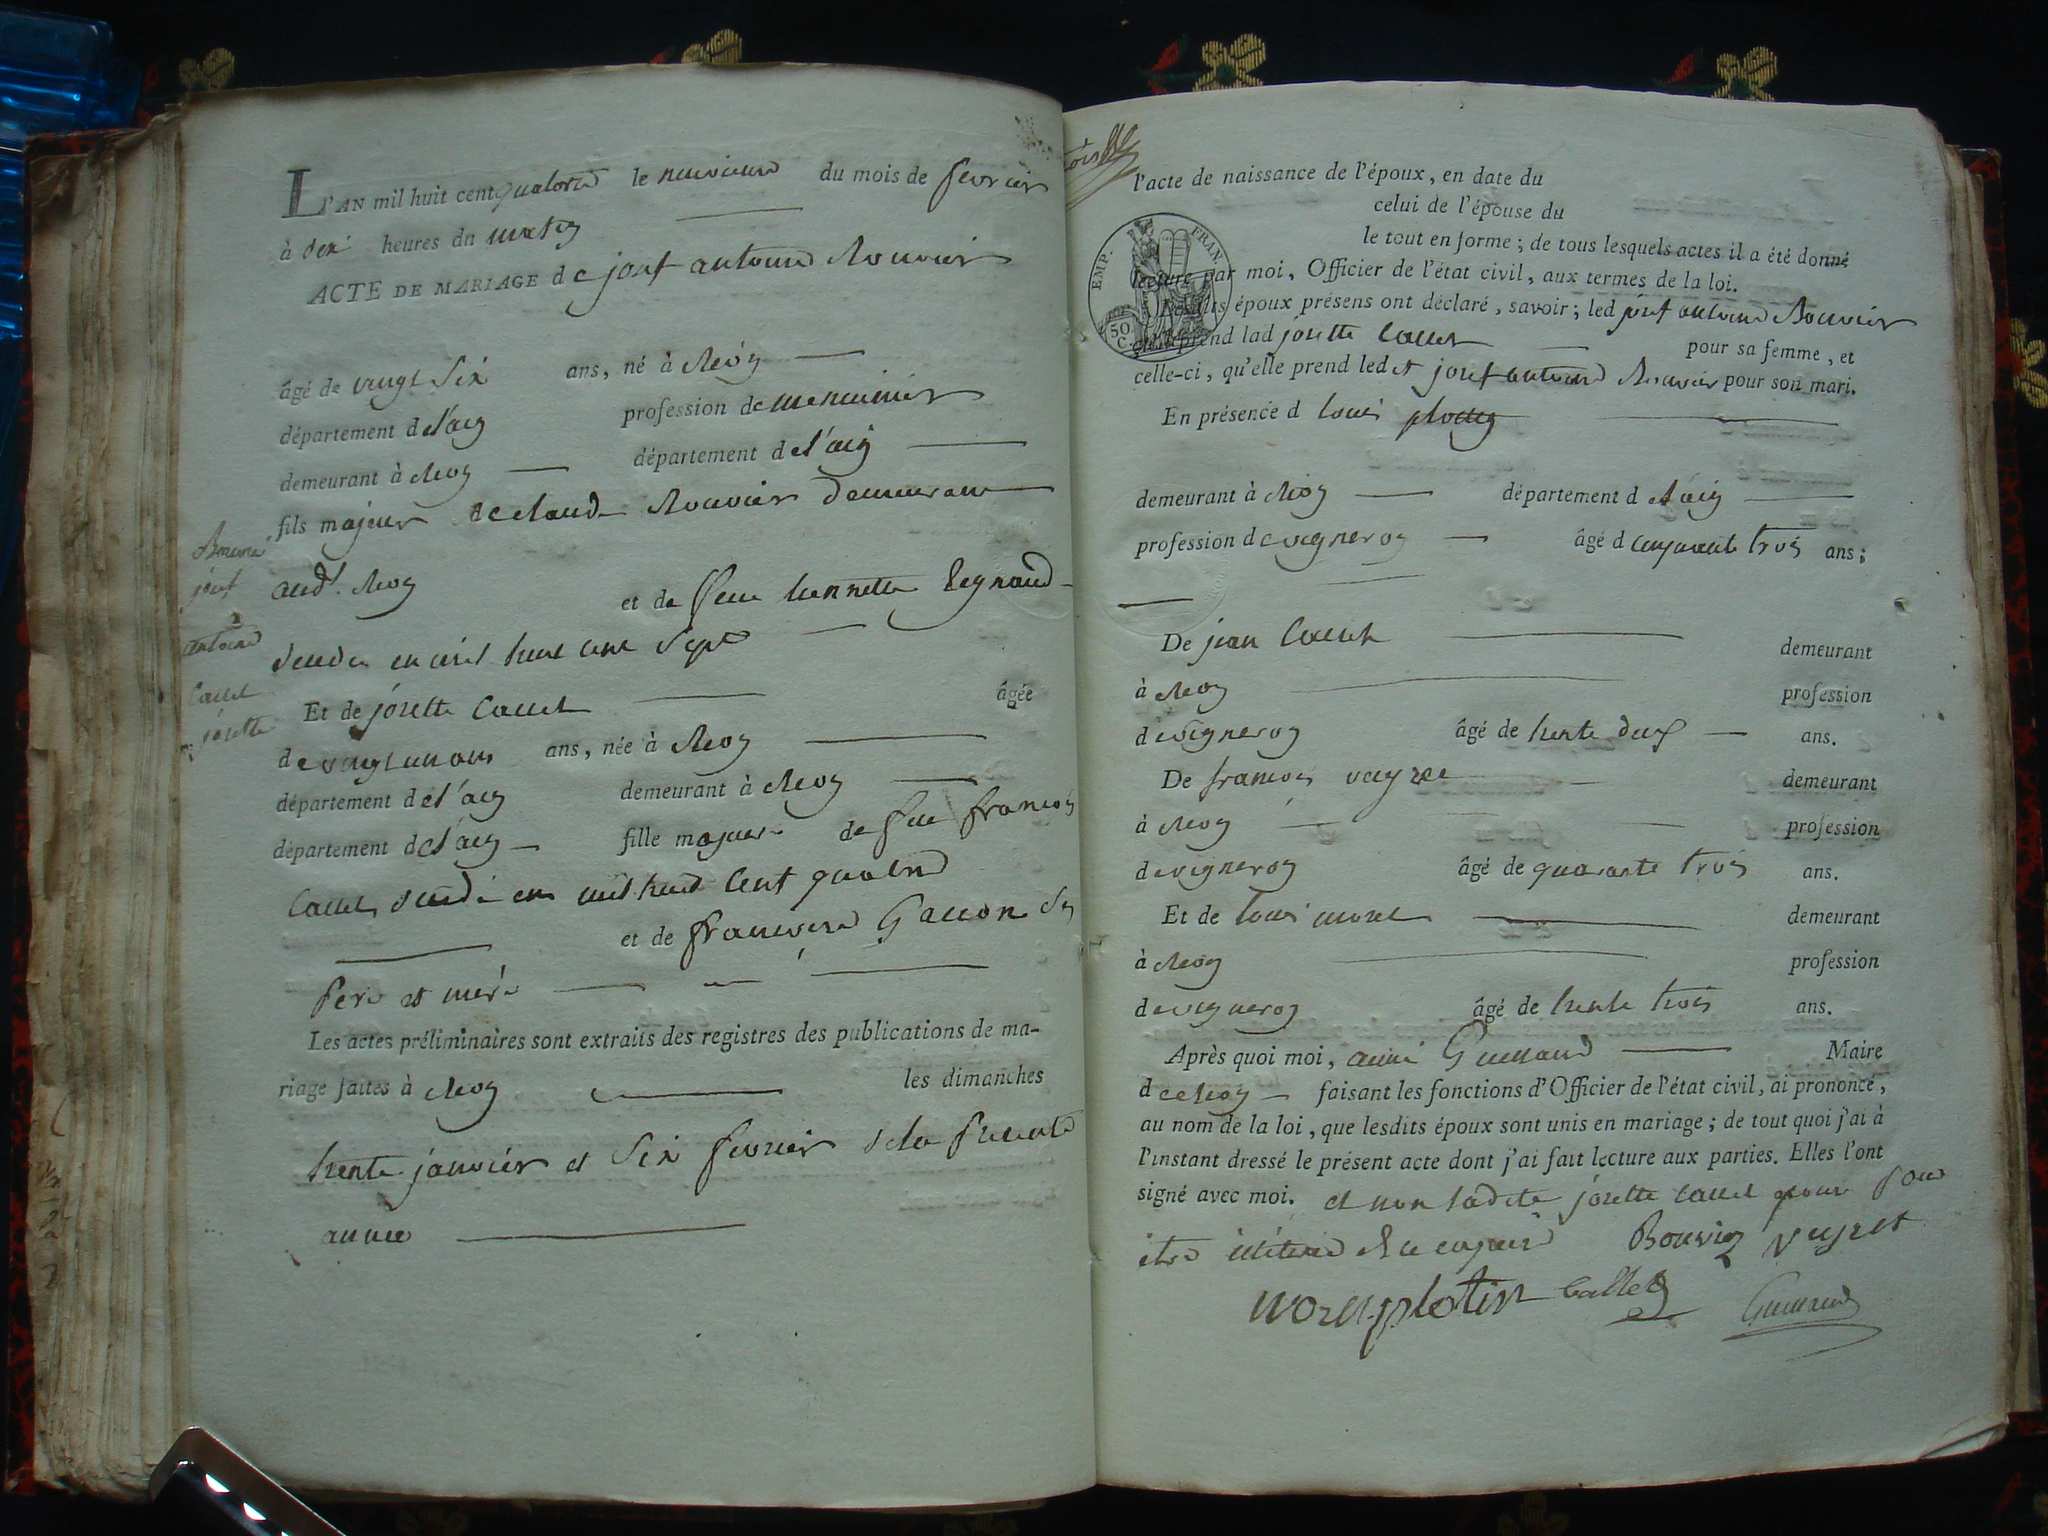 L'AN mil huit cent quatorze le neuvieme du mois de fevrier
à dix heures du matin
ACTE DE MARIAGE de josef antoine Bouvier
âgé de vingt six ans, né à
département de l'ain profession de menuisier
demeurant à département de l'ain
fils majeur de claude Bouvier demeurant
aud.t
josef
et de feue
antoine
decedée en mil huit cent sept
Callet
Et de josette Callet âgée
josette
de vingt un ans ans, née à
département de l'ain demeurant à
département de l'ain fille majeure de feu francois
Callet decedé en mil huit cent quatre
et de francoise Gallon ses
pere et mère
Les actes préliminaires sont extraits des registres des publications de ma-
riage faites à les dimanches
trente janvier et six fevrier de la presente
année
l'acte de naissance de l'époux, en date du
celui de l'épouse du
le tout en forme ; de tous lesquels actes il a été donné
lecture par moi, Officier de l'état civil, aux termes de la loi.
EMP. FRAN.
50 C.
Lesdits époux présens ont déclaré, savoir ; led josef antoine Bouvier
qu'il prend lad josette Callet pour sa femme, et
celle-ci, qu'elle prend led josef antoine Bouvier pour son mari.
En présence d louis
demeurant à département de l'ain
profession de vigneron âgé d cinquante trois ans ;
De jean Callet demeurant
à profession
de vigneron âgé de trente deux ans.
De francois demeurant
à profession
de vigneron âgé de quarante trois ans.
Et de louis morel demeurant
à profession
de vigneron âgé de trente trois ans.
Après quoi moi, Maire
de faisant les fonctions d'Officier de l'état civil, ai prononcé,
au nom de la loi, que lesdits époux sont unis en mariage ; de tout quoi j'ai à
l'instant dressé le présent acte dont j'ai fait lecture aux parties. Elles l'ont
signé avec moi. et non ladite josette Callet pour
etre de ce enquise Bouvier
morel plotin Callet